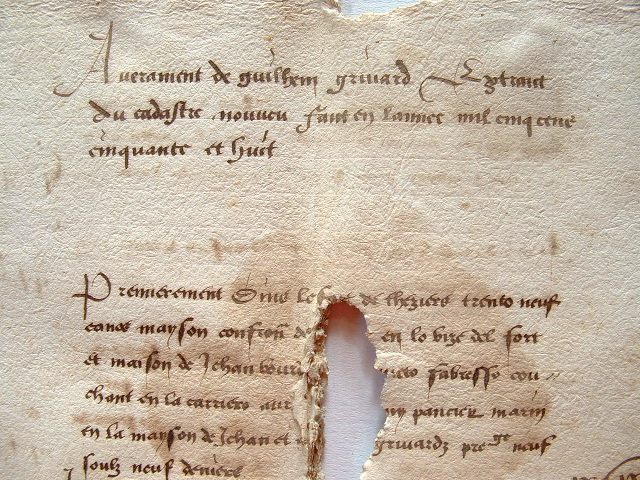 Averament de guilhem grivard Extraict
du cadastre nouveu faict en lannee mil cinq cens
cinquante et huit
Premierement dins le fort de theziers trento neuf
canos mayson confron̄ de en lo bize del fort
et maison de Jehan fabresso cou
chant en la carriero marin
en la mayson de Jehan et grivardz neuf
soulz neuf deniers